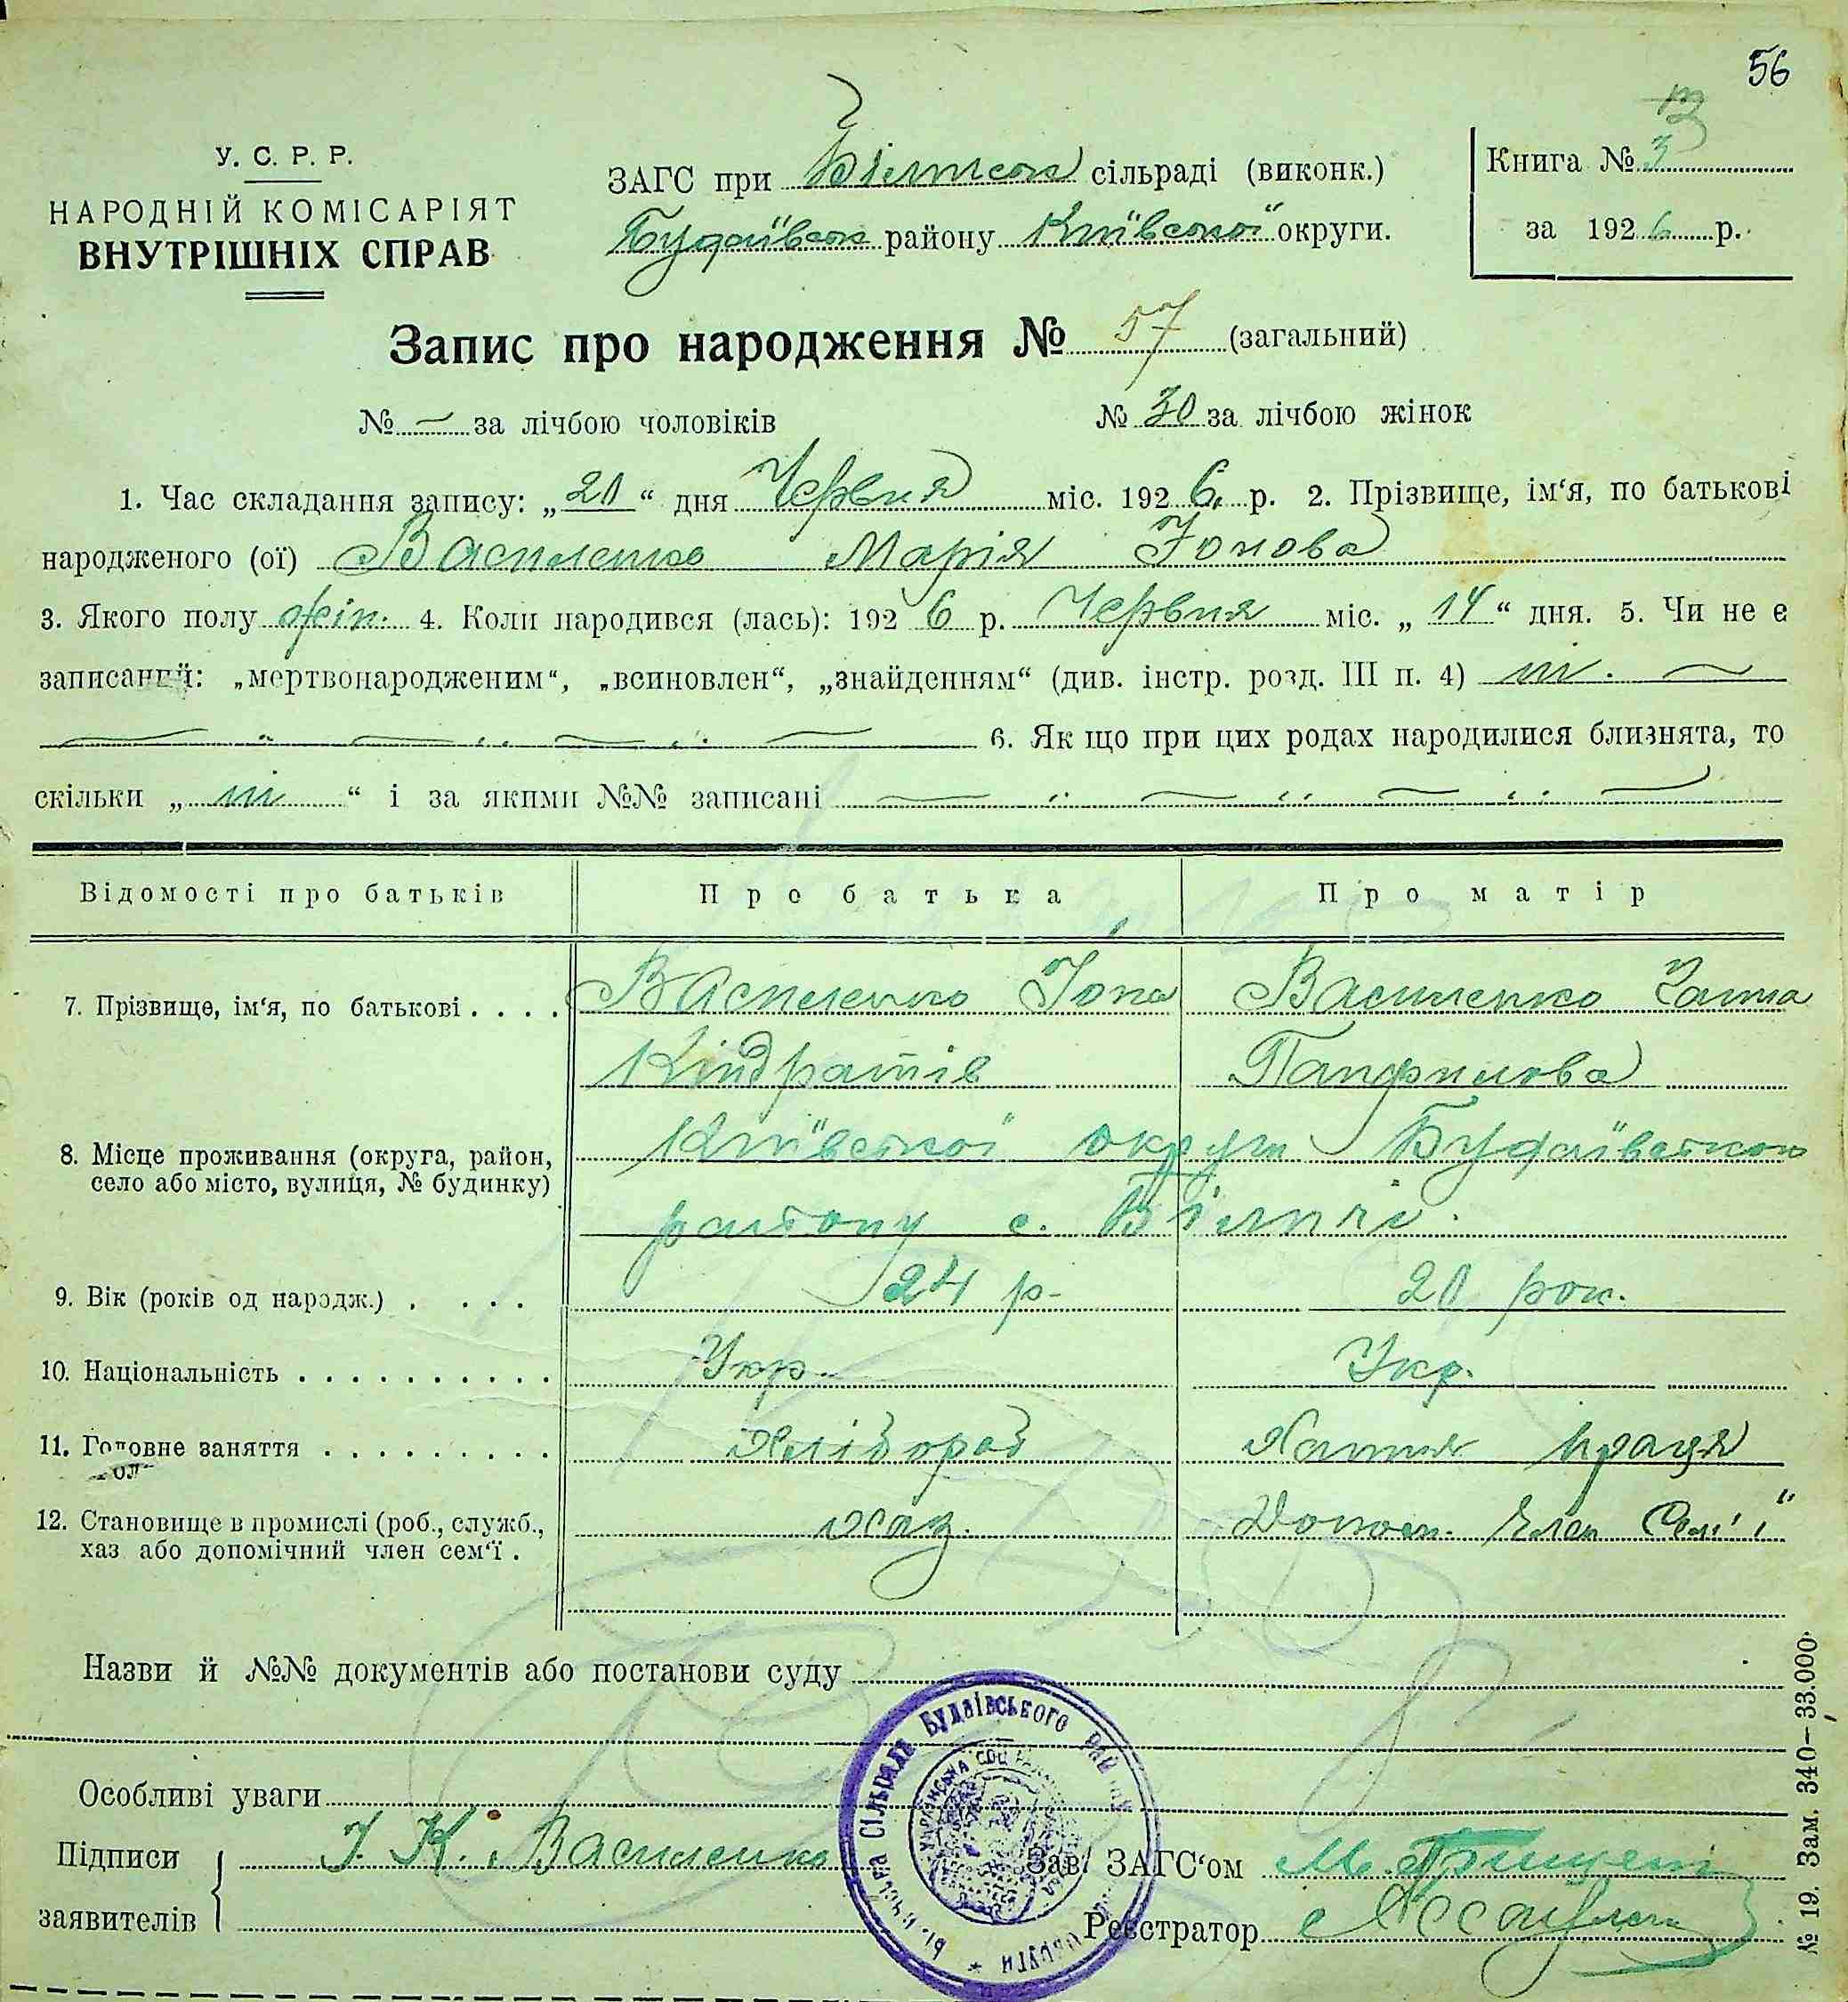 56
У. С. Р. Р.
НАРОДНІЙ КОМІСАРІЯТ
ВНУТРІШНІХ СПРАВ
ЗАГС при сільраді (виконк.)
Будаївськ району Київської округи.
13
Книга № 3
за 1926 р.
Запис про народження № 57 (загальний)
№ — за лічбою чоловіків № 30 за лічбою жінок
1. Час складання запису: „20“ дня Червня міс. 1926 р. 2. Прізвище, ім‘я, по батькові
народженого (ої) Василенко Марія Іонова
3. Якого полу жін. 4. Коли народився (лась): 1926 р. Червня міс. „14“ дня. 5. Чи не є
записаний: „мертвонародженим“, „всиновлен“, „знайденням“ (див. інстр. розд. III п. 4) ні. —
6. Як що при цих родах народилися близнята, то
скільки „ні“ і за якими №№ записані
Відомості про батьків Про батька Про матір
7. Прізвище, ім‘я, по батькові . . . . Василенко Іона Василенко Ганна
Кіндратів Панфилова
8. Місце проживання (округа, район, село або місто, вулиця, № будинку) Київської округи Будаївського
району с. Біличі.
9. Вік (років од народж.) . . . . 24 р- 20 рок.
10. Національність . . . . . . . . . . Укр. Укр.
11. Головне заняття . . . . . . . . . Хлібороб Хатня праця
12. Становище в промислі (роб., служб., хаз. Допом. член сем'ї
хаз або допомічний член сем‘ї .
Назви й №№ документів або постанови суду
Особливі уваги
Підписи І. К. Василенко Зав. ЗАГС‘ом М.
заявителів Реєстратор
Білицька Сільрада Будаівського району округи
№ 19. Зам. 340—33.000.